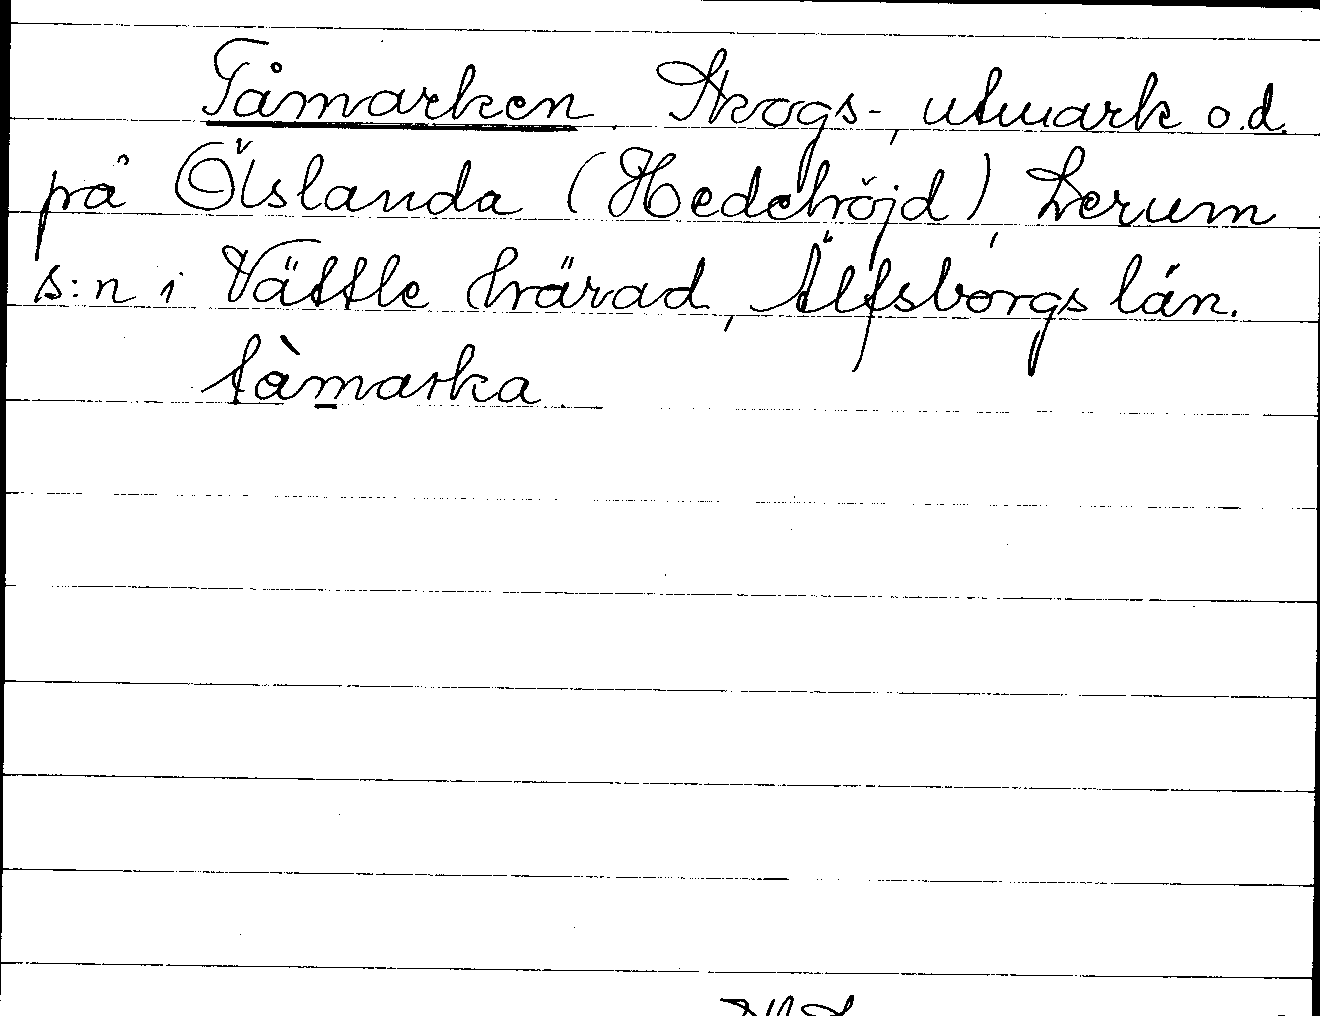 Tåmarken. Skogs-, utmark o.d.
på Ölslanda (Hedehöjd), Lerum
s:n i Vättle härad, Älfsborgs län.
tåmarka